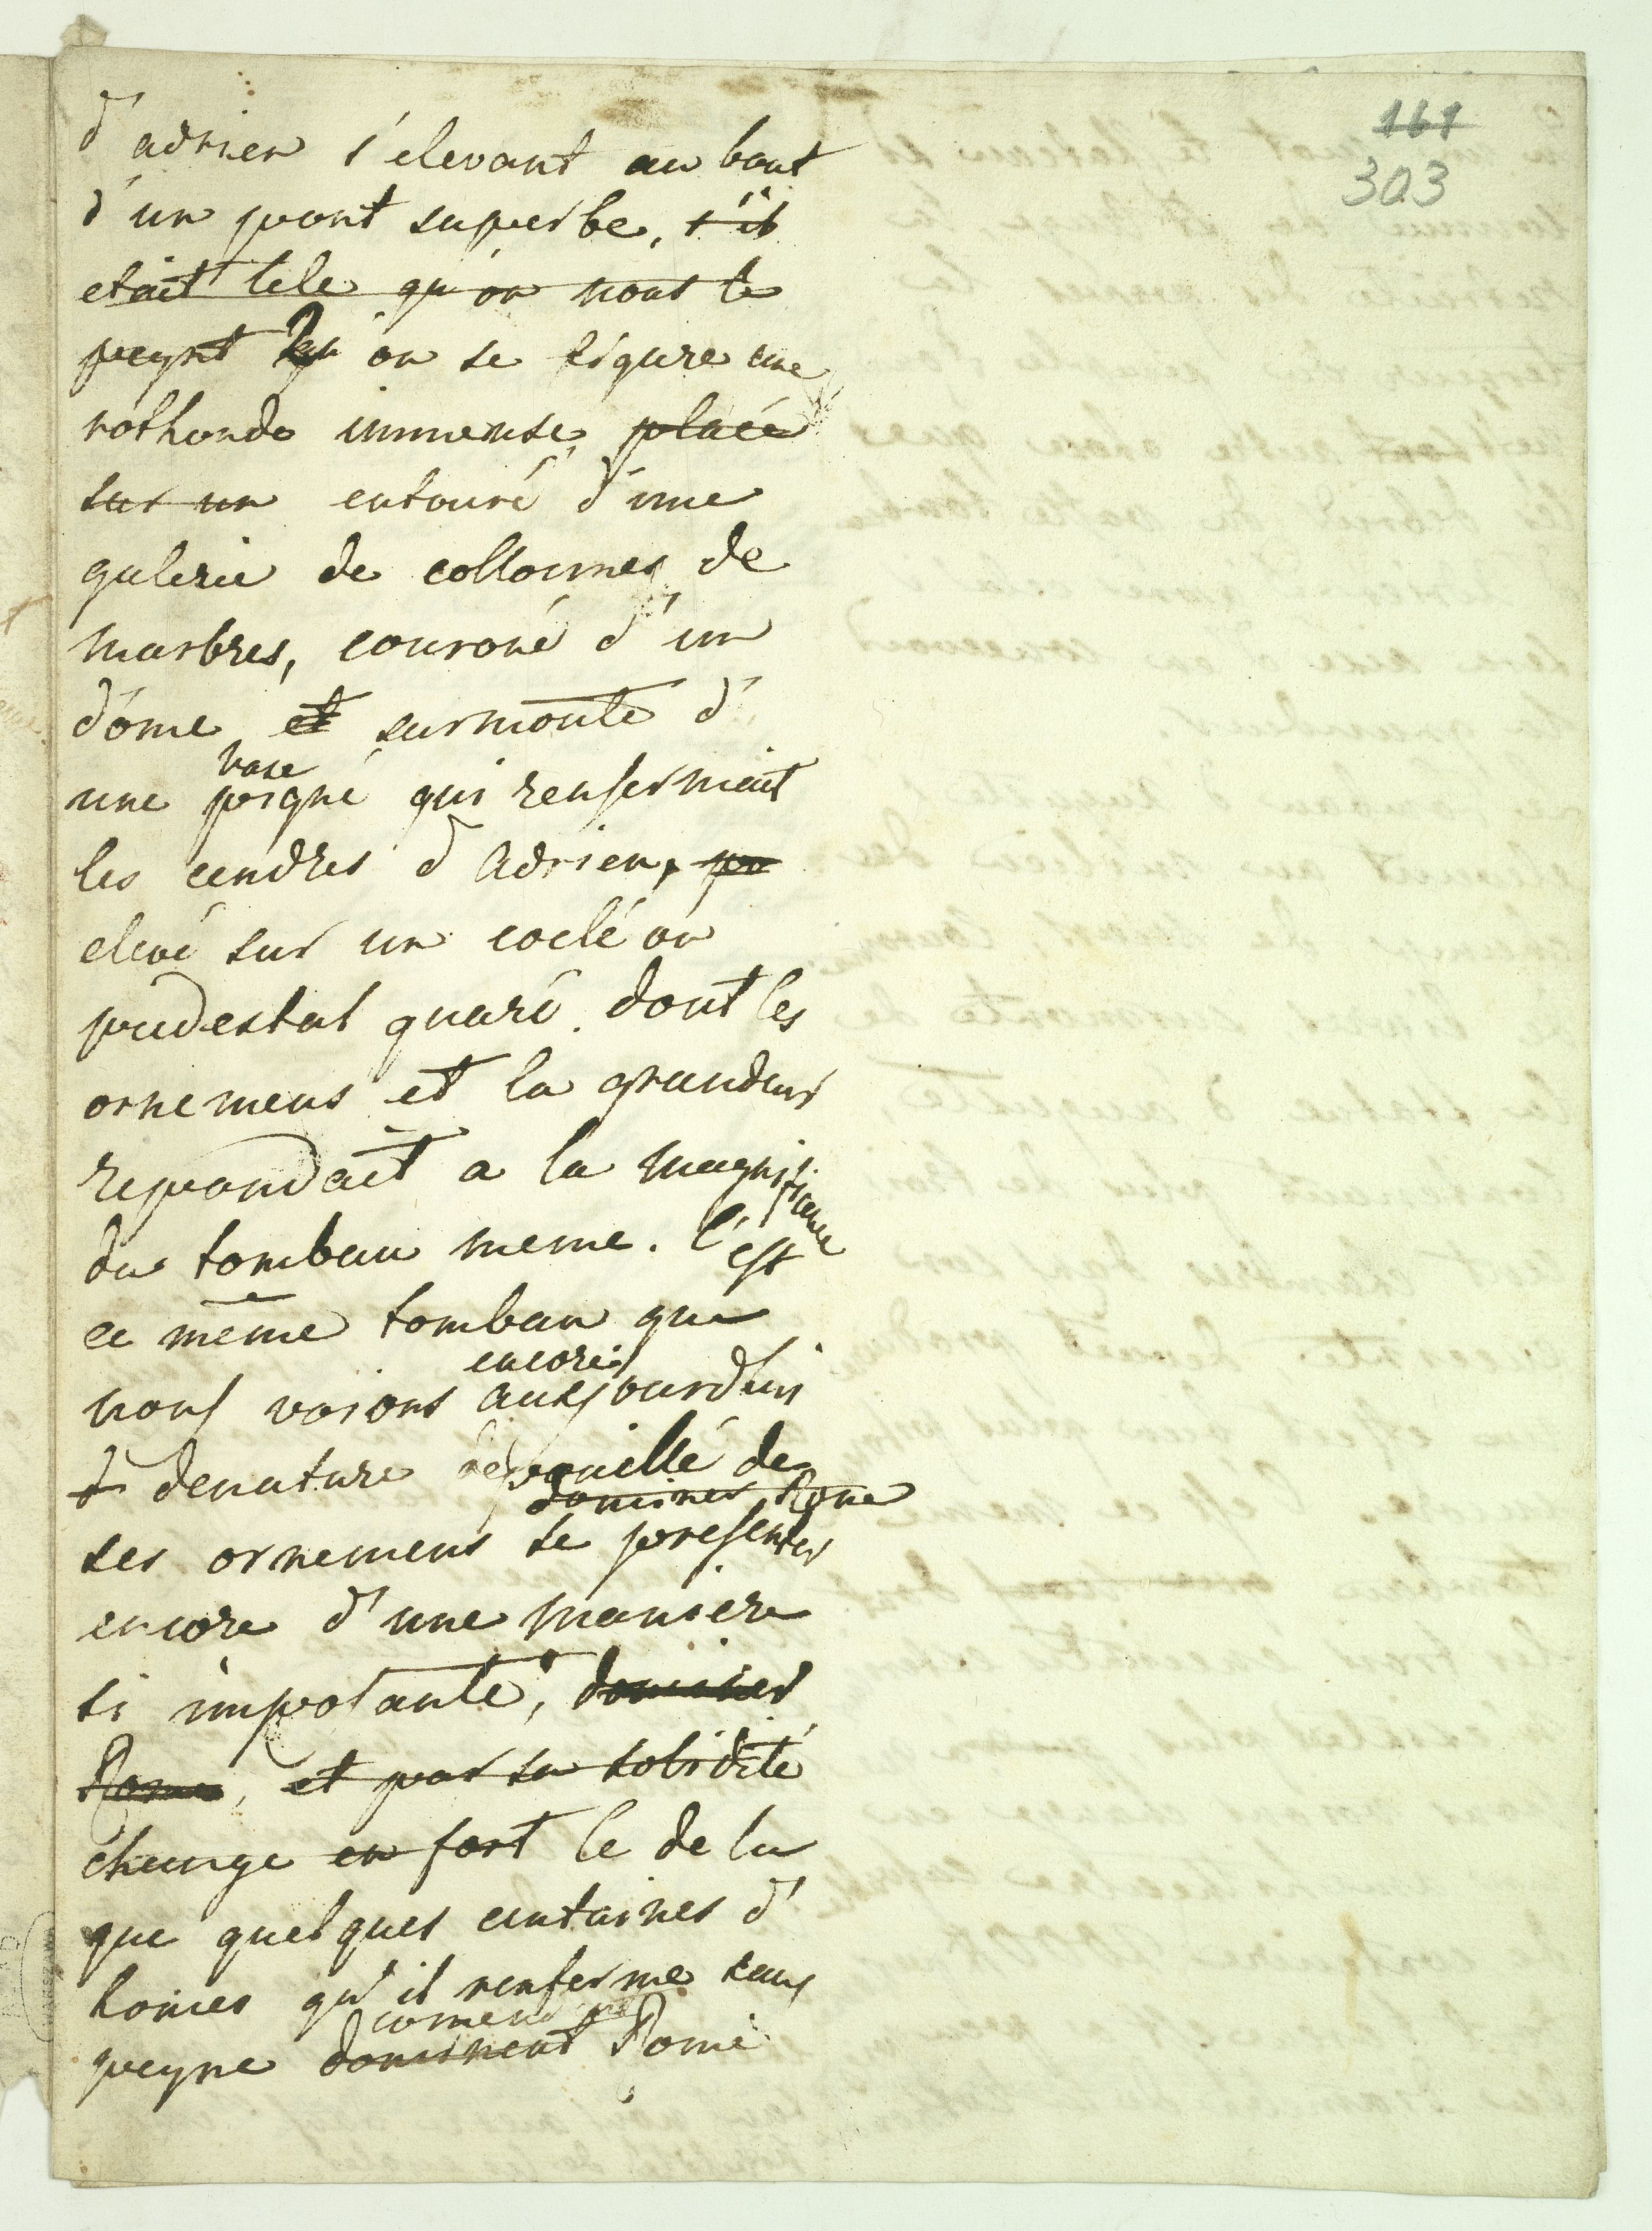 161
303
d'adrier s'elevant au bout
d'un pont superbe, s'il
etait tele qu'on nous le
peynt qu'on se figure une
rothonde immense, placé
sur un entouré d'une
galerie de collounes de
marbres, couroné d'un
dôme et surmonté d'
vase
une pigne qui renfermait
les cendres d'Adrien, po
elevé sur un coclé ou
piedestal quaré. dont les
ornemens et la grandeur
repondait a la magnificence
du tombau meme. C'est
ce même tombau que
encore
nous voions aujourdui
denature depouillé de
dominer Rome
ses ornemens se presenter
encore d'une maniere
si imposante, dominer
Rome, et par sa solidité
change en fort le de la
que quelques centaines d'
homes qu'il renferme sans
peyne dominent Rome